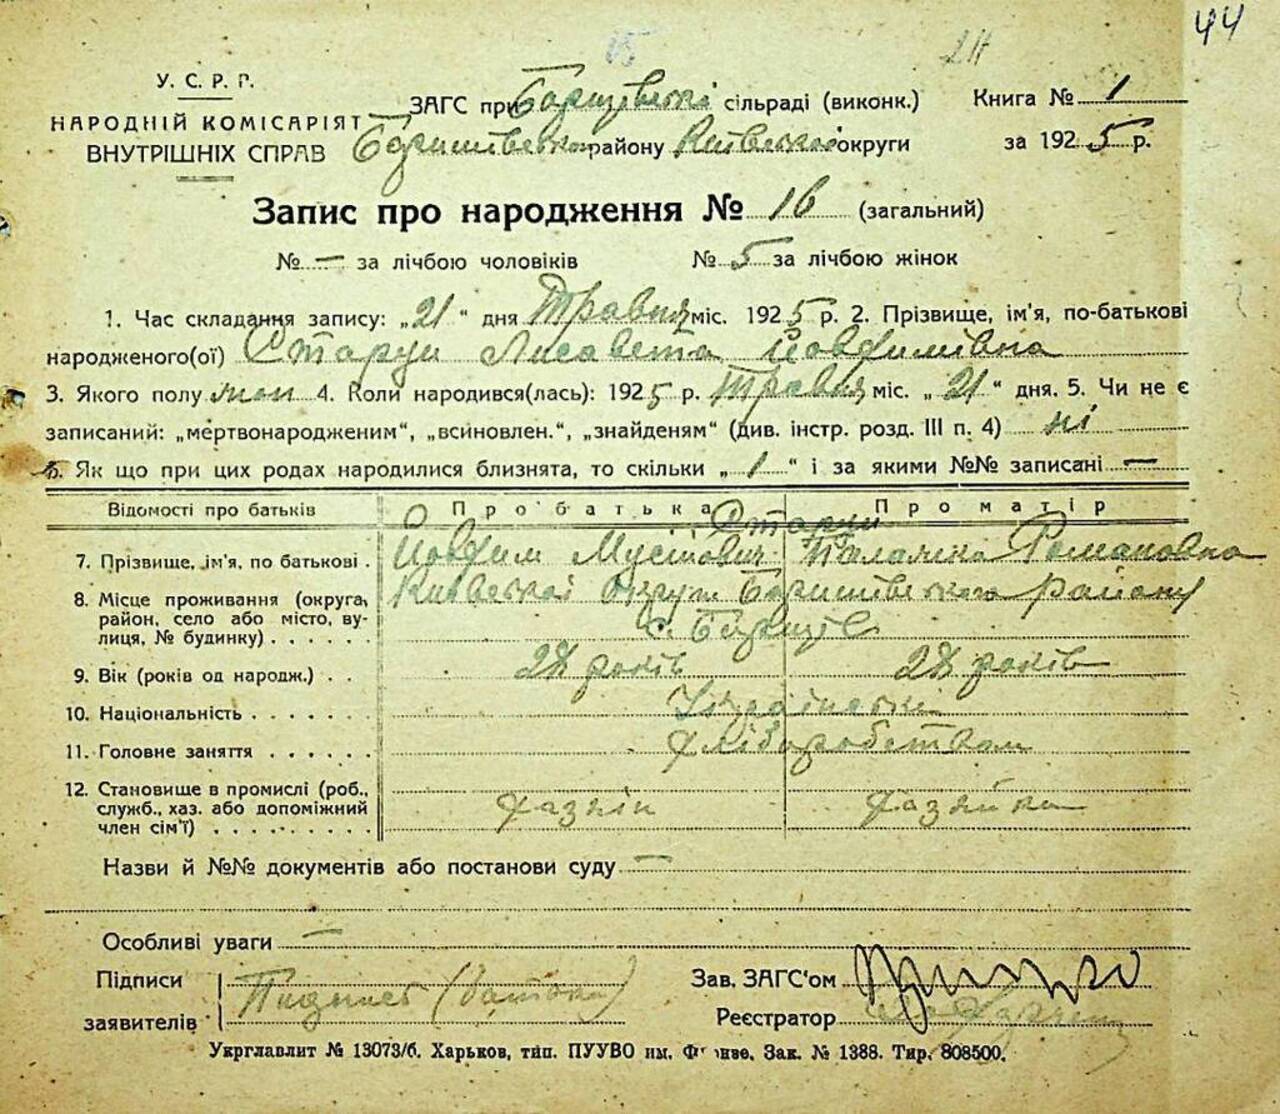 44
У. С. Р. Р.
НАРОДНІЙ КОМІСАРІЯТ
ВНУТРІШНІХ СПРАВ
ЗАГС при Борщевскі сільраді (виконк.)
Баришівського району Київської округи
Книга № 1
за 1925 р.
Запис про народження № 16 (загальний)
№ — за лічбою чоловіків № 5 за лічбою жінок
1. Час складання запису: „21“ дня Травня міс. 1925 р. 2. Прізвище, ім'я, по-батькові
народженого(ої) Старун Лисавета Йовхимівна
3. Якого полу жон 4. Коли народився(лась): 1925 р. Травня міс. „21“ дня. 5. Чи не є
записаний: „мертвонародженим“, „всиновлен.“, „знайденям“ (див. інстр. розд. III п. 4) ні
6. Як що при цих родах народилися близнята, то скільки „1“ і за якими №№ записані —
Відомості про батьків Про батька Про матір
Старун
7. Прізвище, ім'я, по батькові Йовхим Мусійович Палажка Романовна
8. Місце проживання (округа, район, село або місто, вулиця, № будинку) Київської округи Баришівського району
с. Борщів
9. Вік (років од народж.) 28 років 28 років
10. Національність Українські
11. Головне заняття Хліборобством
12. Становище в промислі (роб., служб., хаз. або допоміжний член сім'ї) Хазяін Хазяйка
Назви й №№ документів або постанови суду —
Особливі уваги —
Підписи
заявителів
Підпис (батька)
Зав. ЗАГС'ом
Реєстратор
Укрглавлит № 13073/б. Харьков, тип. ПУУВО им. Фрунзе. Зак. № 1388. Тир. 808500.